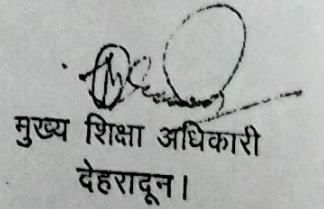 मुख्य शिक्षा अधिकारी
देहरादून।